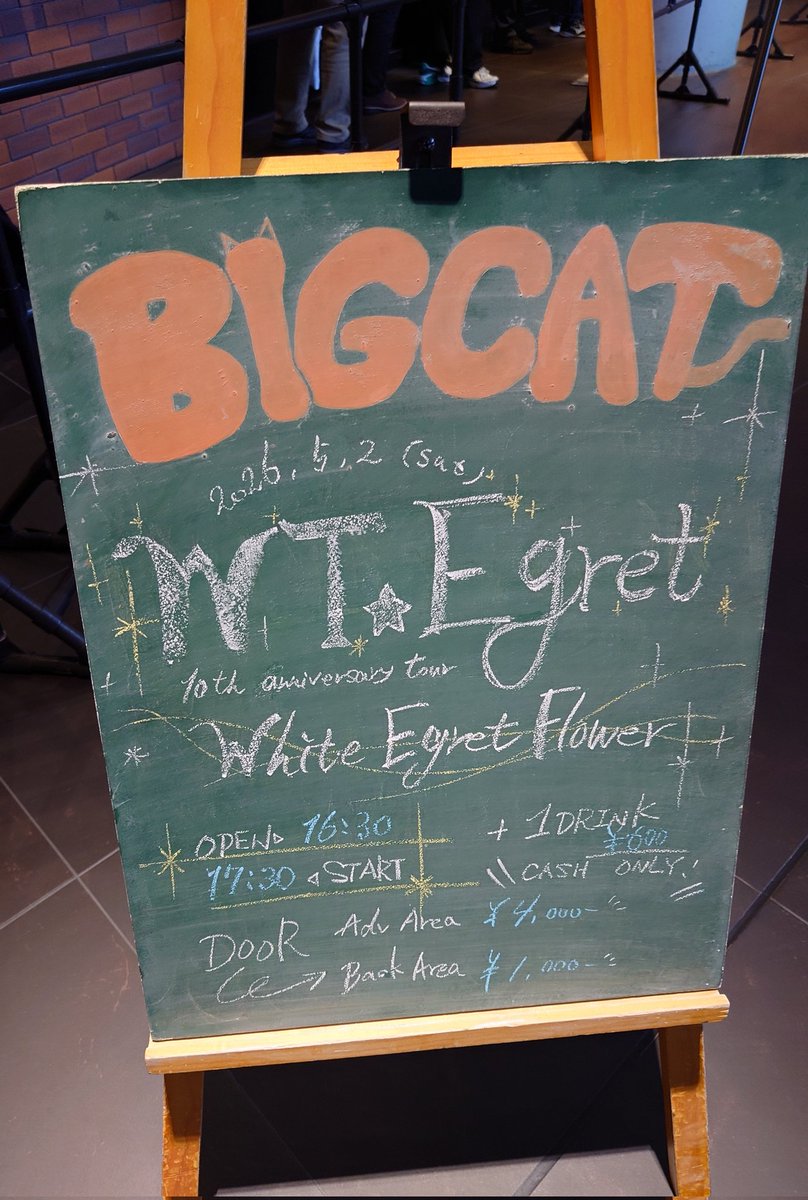 BIGCAT
2026.5.2 (sat)
WT☆Egret
10th anniversary tour
White Egret Flower
OPEN▷ 16:30
17:30 ◁START
+ 1DRINK
¥600
\\ CASH ONLY! //
DOOR Adv Area ¥4,000-
Back Area ¥1,000-